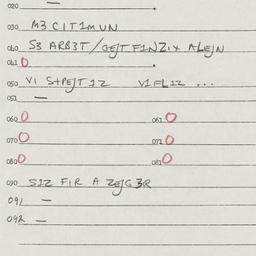 020 —
030 M3 CIT1MUN
040 S3 ARB3T/GEJT F1NZIX ALEJN
041 0
050 VI STPEJT 1Z VIFL1Z ...
051 —
060 0 061 0
070 0 071 0
080 0 081 0
090 S1Z FIR A ZEJG3R
091 —
092 —